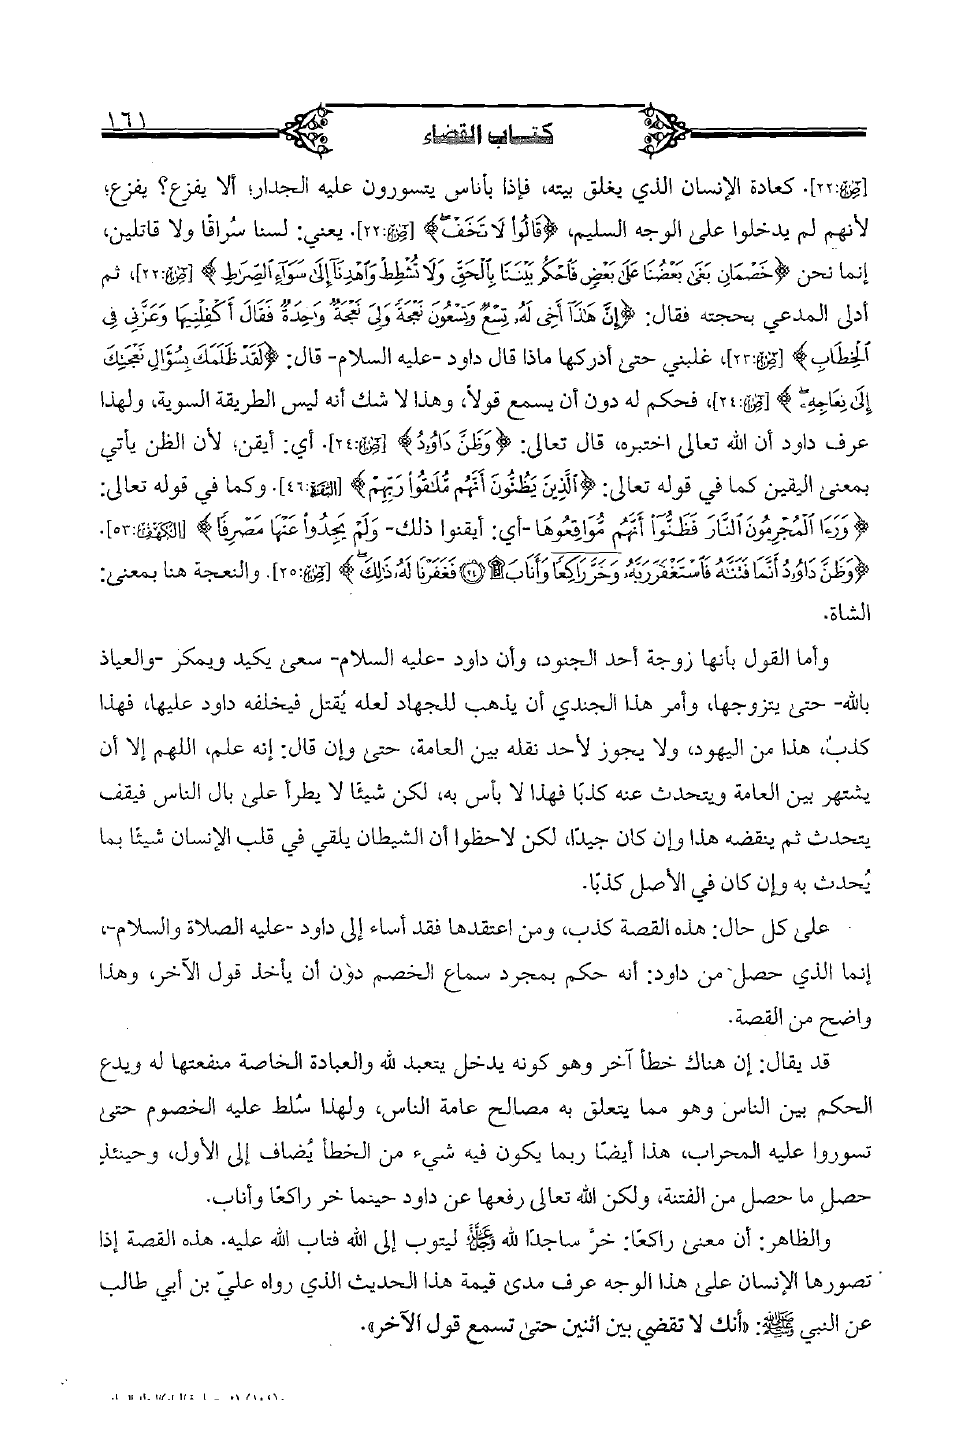 ١٦١
كتاب القضاء
[ص:٢٢]. كعادة الإنسان الذي يغلق بيته، فإذا بأناس يتسورون عليه الجدار؛ ألا يفزع؟ يفزع؛
لأنهم لم يدخلوا على الوجه السليم، ﴿قَالُوا۟ لَا تَخَفْ﴾ [ص:٢٢]. يعني: لسنا سُراقًا ولا قاتلين،
إنما نحن ﴿خَصْمَانِ بَغَىٰ بَعْضُنَا عَلَىٰ بَعْضٍ فَٱحْكُم بَيْنَنَا بِٱلْحَقِّ وَلَا تُشْطِطْ وَٱهْدِنَآ إِلَىٰ سَوَآءِ ٱلصِّرَٰطِ﴾ [ص:٢٢]، ثم
أدلى المدعي بحجته فقال: ﴿إِنَّ هَٰذَآ أَخِى لَهُۥ تِسْعٌ وَتِسْعُونَ نَعْجَةً وَلِىَ نَعْجَةٌ وَٰحِدَةٌ فَقَالَ أَكْفِلْنِيهَا وَعَزَّنِى فِى
ٱلْخِطَابِ﴾ [ص:٢٣]، غلبني حتى أدركها ماذا قال داود -عليه السلام- قال: ﴿لَقَدْ ظَلَمَكَ بِسُؤَالِ نَعْجَتِكَ
إِلَىٰ نِعَاجِهِۦ﴾ [ص:٢٤]، فحكم له دون أن يسمع قولاً، وهذا لا شك أنه ليس الطريقة السوية، ولهذا
عرف داود أن الله تعالى اختبره، قال تعالى: ﴿وَظَنَّ دَاوُۥدُ﴾ [ص:٢٤]. أي: أيقن؛ لأن الظن يأتي
بمعنى اليقين كما في قوله تعالى: ﴿ٱلَّذِينَ يَظُنُّونَ أَنَّهُم مُّلَٰقُوا۟ رَبِّهِمْ﴾ [البقرة:٤٦]. وكما في قوله تعالى:
﴿وَرَءَا ٱلْمُجْرِمُونَ ٱلنَّارَ فَظَنُّوٓا۟ أَنَّهُم مُّوَاقِعُوهَا -أي: أيقنوا ذلك- وَلَمْ يَجِدُوا۟ عَنْهَا مَصْرِفًا﴾ [الكهف:٥٣].
﴿وَظَنَّ دَاوُۥدُ أَنَّمَا فَتَنَّٰهُ فَٱسْتَغْفَرَ رَبَّهُۥ وَخَرَّ رَاكِعًا وَأَنَابَ ۩ (٢٤) فَغَفَرْنَا لَهُۥ ذَٰلِكَ﴾ [ص:٢٥]. والنعجة هنا بمعنى:
الشاة.
وأما القول بأنها زوجة أحد الجنود، وأن داود -عليه السلام- سعى يكيد ويمكر -والعياذ
بالله- حتى يتزوجها، وأمر هذا الجندي أن يذهب للجهاد لعله يُقتل فيخلفه داود عليها، فهذا
كذبٌ، هذا من اليهود، ولا يجوز لأحد نقله بين العامة، حتى وإن قال: إنه علم، اللهم إلا أن
يشتهر بين العامة ويتحدث عنه كذبًا فهذا لا بأس به، لكن شيئًا لا يطرأ على بال الناس فيقف
يتحدث ثم ينقضه هذا وإن كان جيدًا، لكن لاحظوا أن الشيطان يلقي في قلب الإنسان شيئًا بما
يُحدث به وإن كان في الأصل كذبًا.
على كل حال: هذه القصة كذب، ومن اعتقدها فقد أساء إلى داود -عليه الصلاة والسلام-،
إنما الذي حصل من داود: أنه حكم بمجرد سماع الخصم دون أن يأخذ قول الآخر، وهذا
واضح من القصة.
قد يقال: إن هناك خطأ آخر وهو كونه يدخل يتعبد لله والعبادة الخاصة منفعتها له ويدع
الحكم بين الناس وهو مما يتعلق به مصالح عامة الناس، ولهذا سُلط عليه الخصوم حتى
تسوروا عليه المحراب، هذا أيضًا ربما يكون فيه شيء من الخطأ يُضاف إلى الأول، وحينئذٍ
حصل ما حصل من الفتنة، ولكن الله تعالى رفعها عن داود حينما خر راكعًا وأناب.
والظاهر: أن معنى راكعًا: خرَّ ساجدًا لله ﷻ ليتوب إلى الله فتاب الله عليه. هذه القصة إذا
تصورها الإنسان على هذا الوجه عرف مدى قيمة هذا الحديث الذي رواه عليّ بن أبي طالب
عن النبي ﷺ: «أنك لا تقضي بين اثنين حتى تسمع قول الآخر».